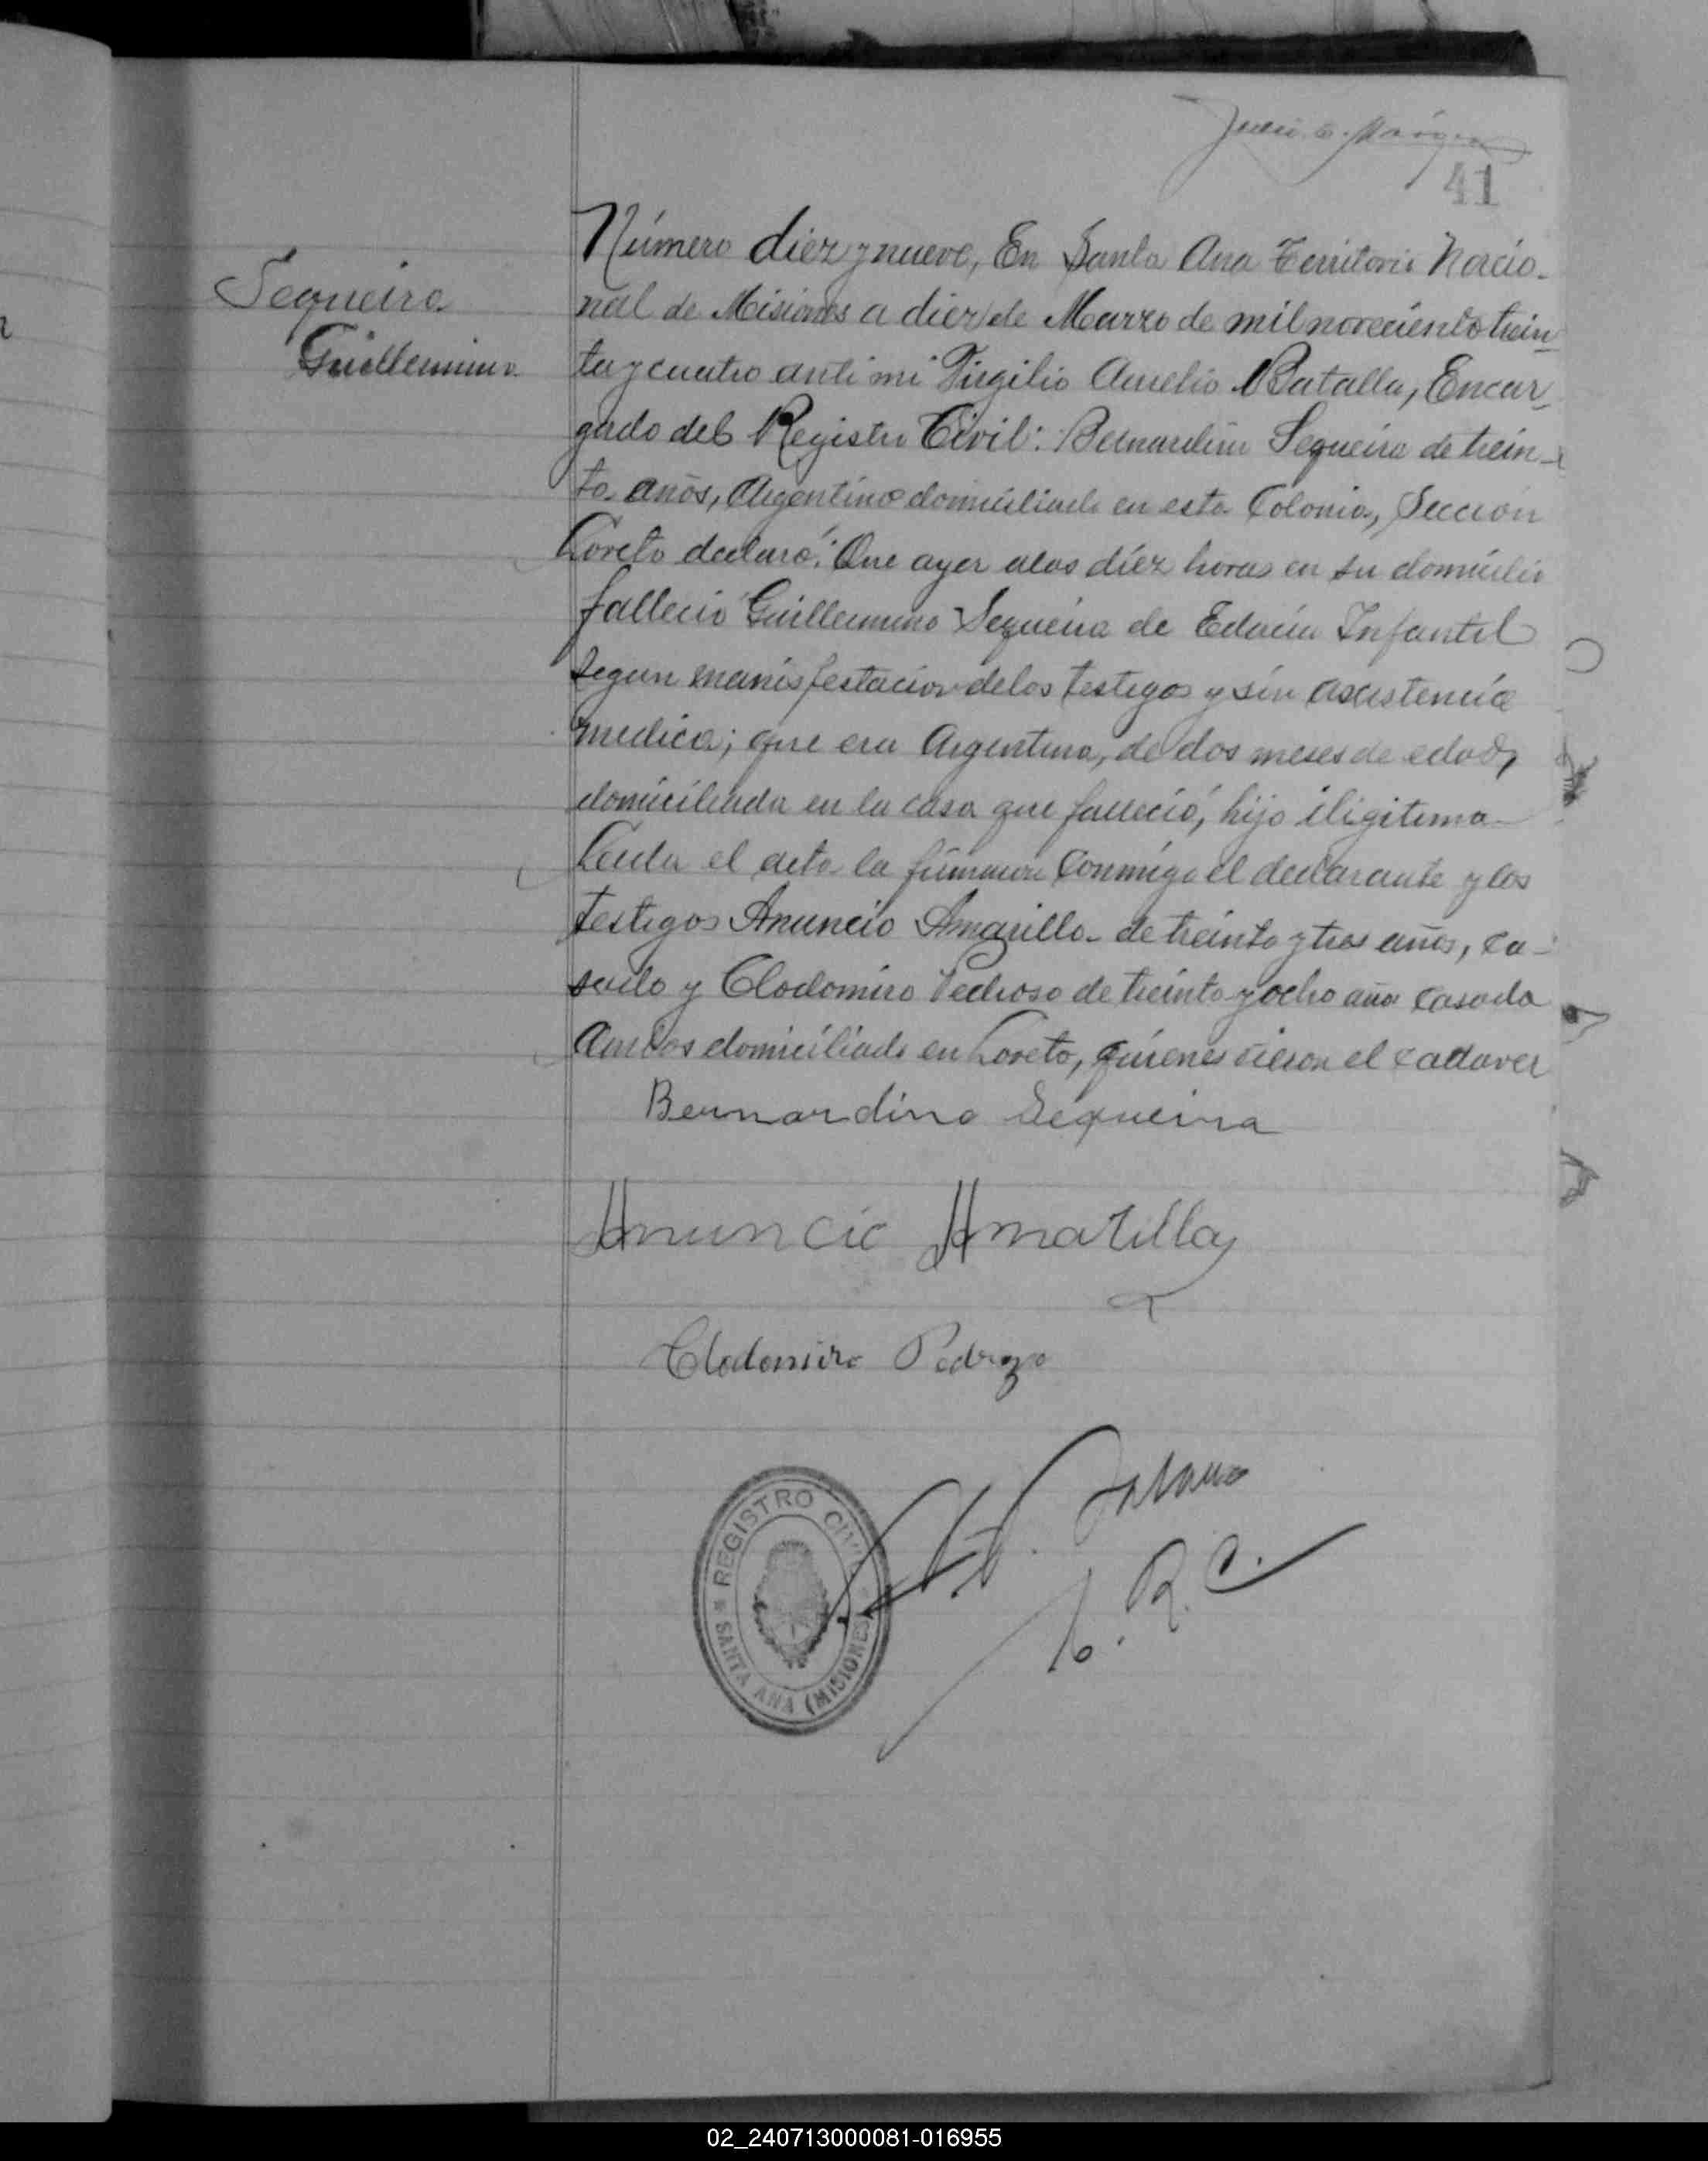 41
Sequeira
Guillermina
Número diez y nueve, En Santa Ana Territorio Nacio-
nal de Misiones a diez de Marzo de mil noveciento trein-
ta y cuatro anti mi Virgilio Aurelio Batalla, Encar-
gado del Registro Civil: Bernardino Sequeira de trein-
ta años, Argentino domiciliado en esta Colonia, Sección
Loreto declaró: Que ayer alas diéz horas en su domicilio
falleció Guillermina Sequeira de Infantil
segun manisfestacion delos testigos y sin asistencia
medica; que era Argentina, de dos meses de edad,
domiciliada en la casa que falleció, hijo iligitima
Leida el acta la firmaron conmigo el declarante y los
testigos Anuncio Amarilla de treinta y tres años, ca-
sado y Clodomiro Pedroso de treinta y ocho años casado
Ambos domiciliado en Loreto, quienes vieron el cadaver
Bernardino Sequeira
Anuncio Amarilla
Clodomiro Pedrozo
REGISTRO CIVIL
SANTA ANA (MISIONES)
R. C.
02_240713000081-016955